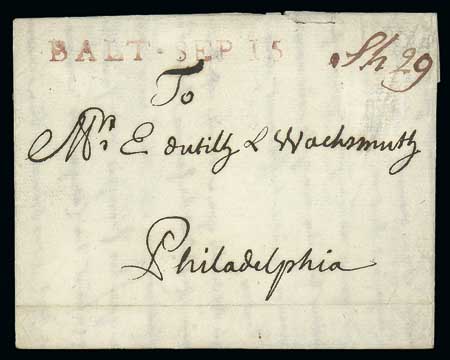 BALT·SEP 15
Sh 29
To
Mrs E dutilh & Wachsmuth
Philadelphia